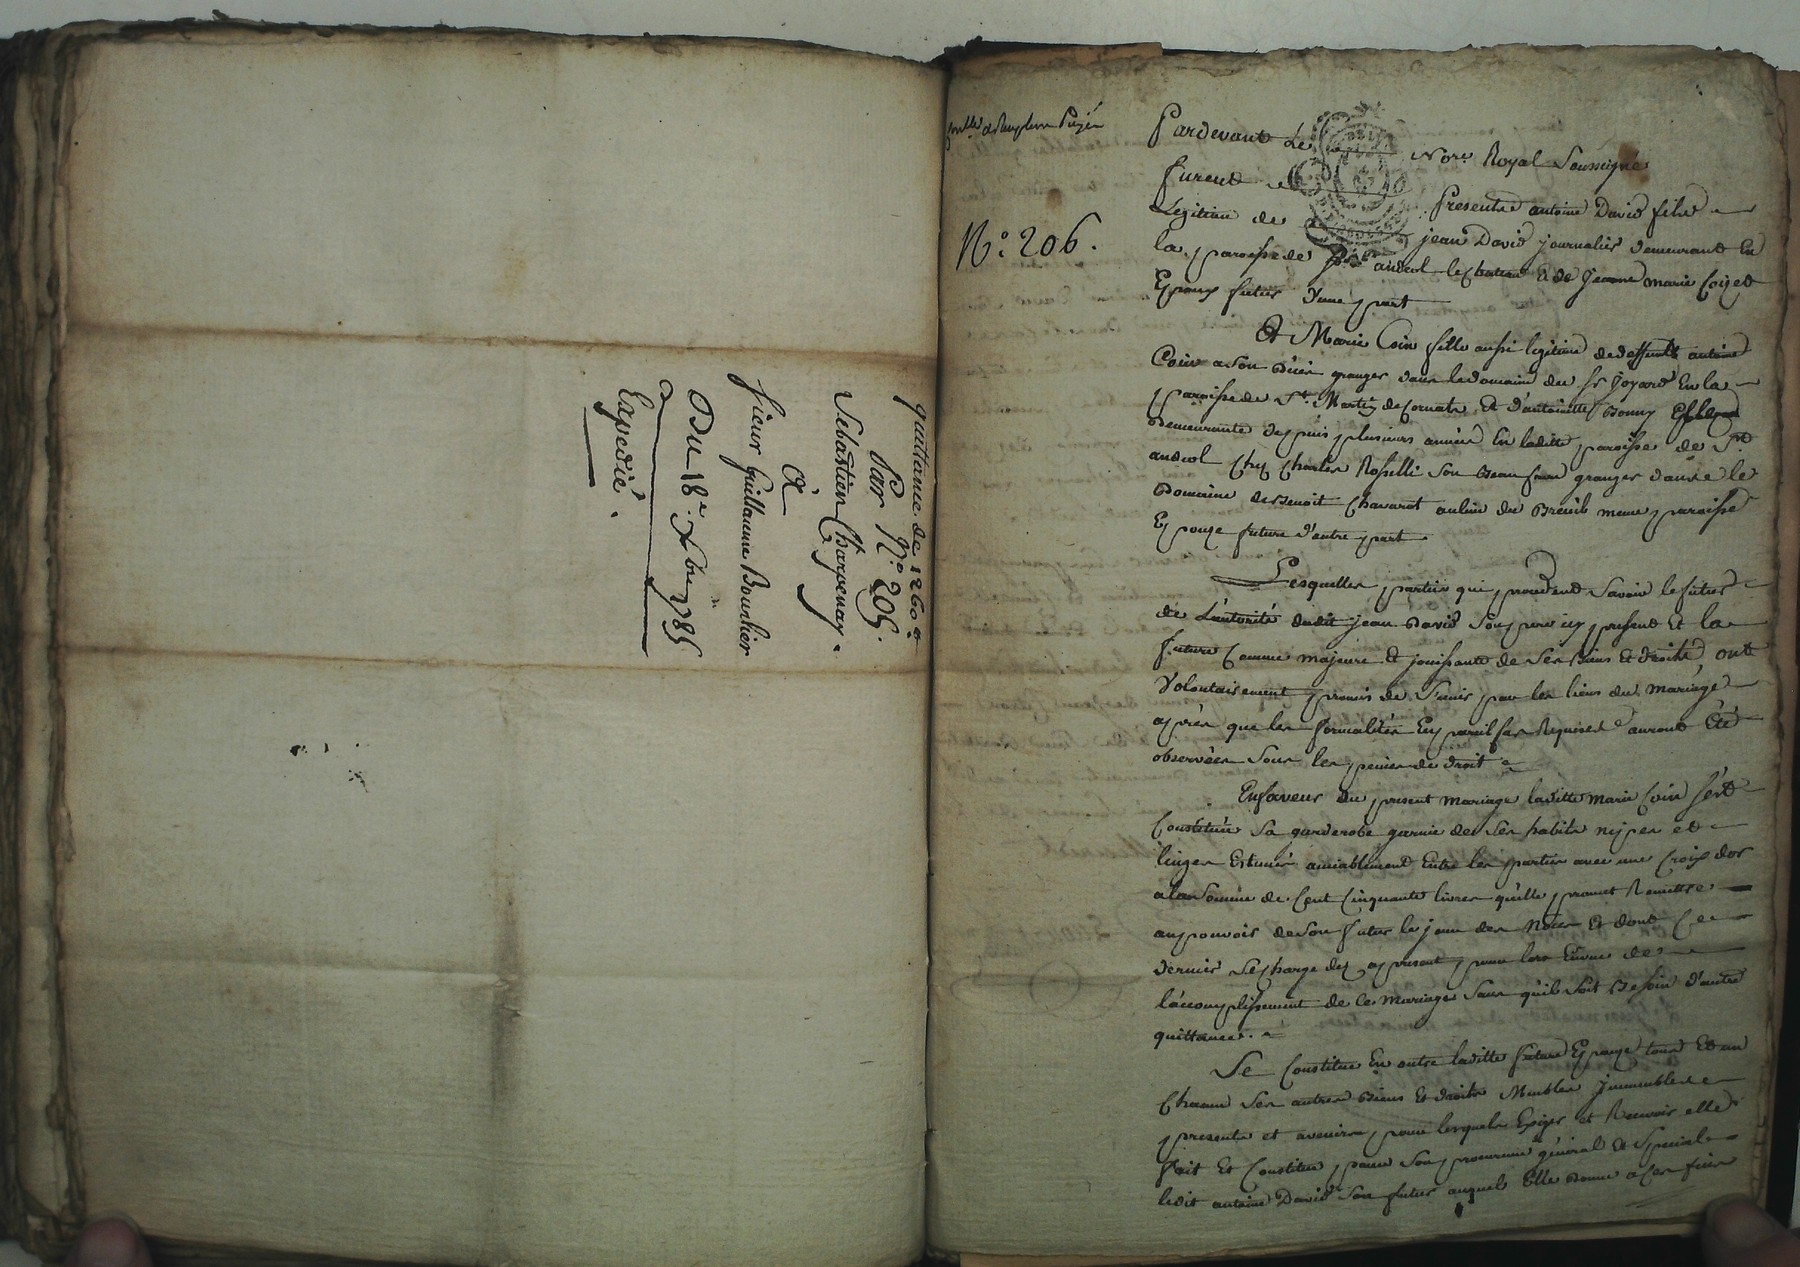 quittance de 1260#
Par N.° 205.
Sebastien Charpenay.
à
sieur Guillaume Bouchier
Du 18.e Xbre 1785
Expedié.
N.° 206.
Pardevant Le Nore. Royal Soussigné
furent Presents antoine David fils
Legitime de jean David journalier demeurant En
la paroisse de St. andeol le chateau & de Jeanne marie
Epoux futur d'une part
Et Marie Coin fille aussi legitime de deffunts antoine
Coin a son vivant granger dans le domaine du Sr. En la
paroisse de St. Martin de Cornas, Et d'antoinette Bonny Elle
demeurante depuis plusieurs années En laditte paroisse de St.
andeol Chez Charles son Beau frere granger dans le
Domaine de Benoit Chavarot au lieu du Breüil meme paroisse
Epouze future d'autre part
Lesquelles parties qui procedent Savoir le futur
de L'autorité dudit jean David son pere icy present Et la
future Comme majeure Et jouissante de ses Biens Et droits, ont
Volontairement promis de s'unir par les liens du mariage
après que les formalités En pareil cas Requises auront Été
observées sous les peines de droit
En faveur du present mariage laditte marie Coin s'est
Constituée Sa garderobe garnie de ses habits nipes et
linges Estimés amiablement Entre les parties avec une Croix d'or
a la Somme de Cent Cinquante livres qu'elle promet Remettre
au pouvoir de son futur le jour des Noces Et dont Ce
dernier Se charge des apresent pour lors En vue de
l'accomplissement de Ce mariage Sans qu'il soit Besoin d'autre
quittance.
Se Constitue En outre laditte future Epouze tous Et un
Chacun ses autres Biens Et droits Meubles Immeubles
presents et avenirs, pour lesquels Exiger et Recevoir elle
fait Et Constitue pour son procureur général Et Special
ledit antoine David son futur auquel Elle donne a ces fins